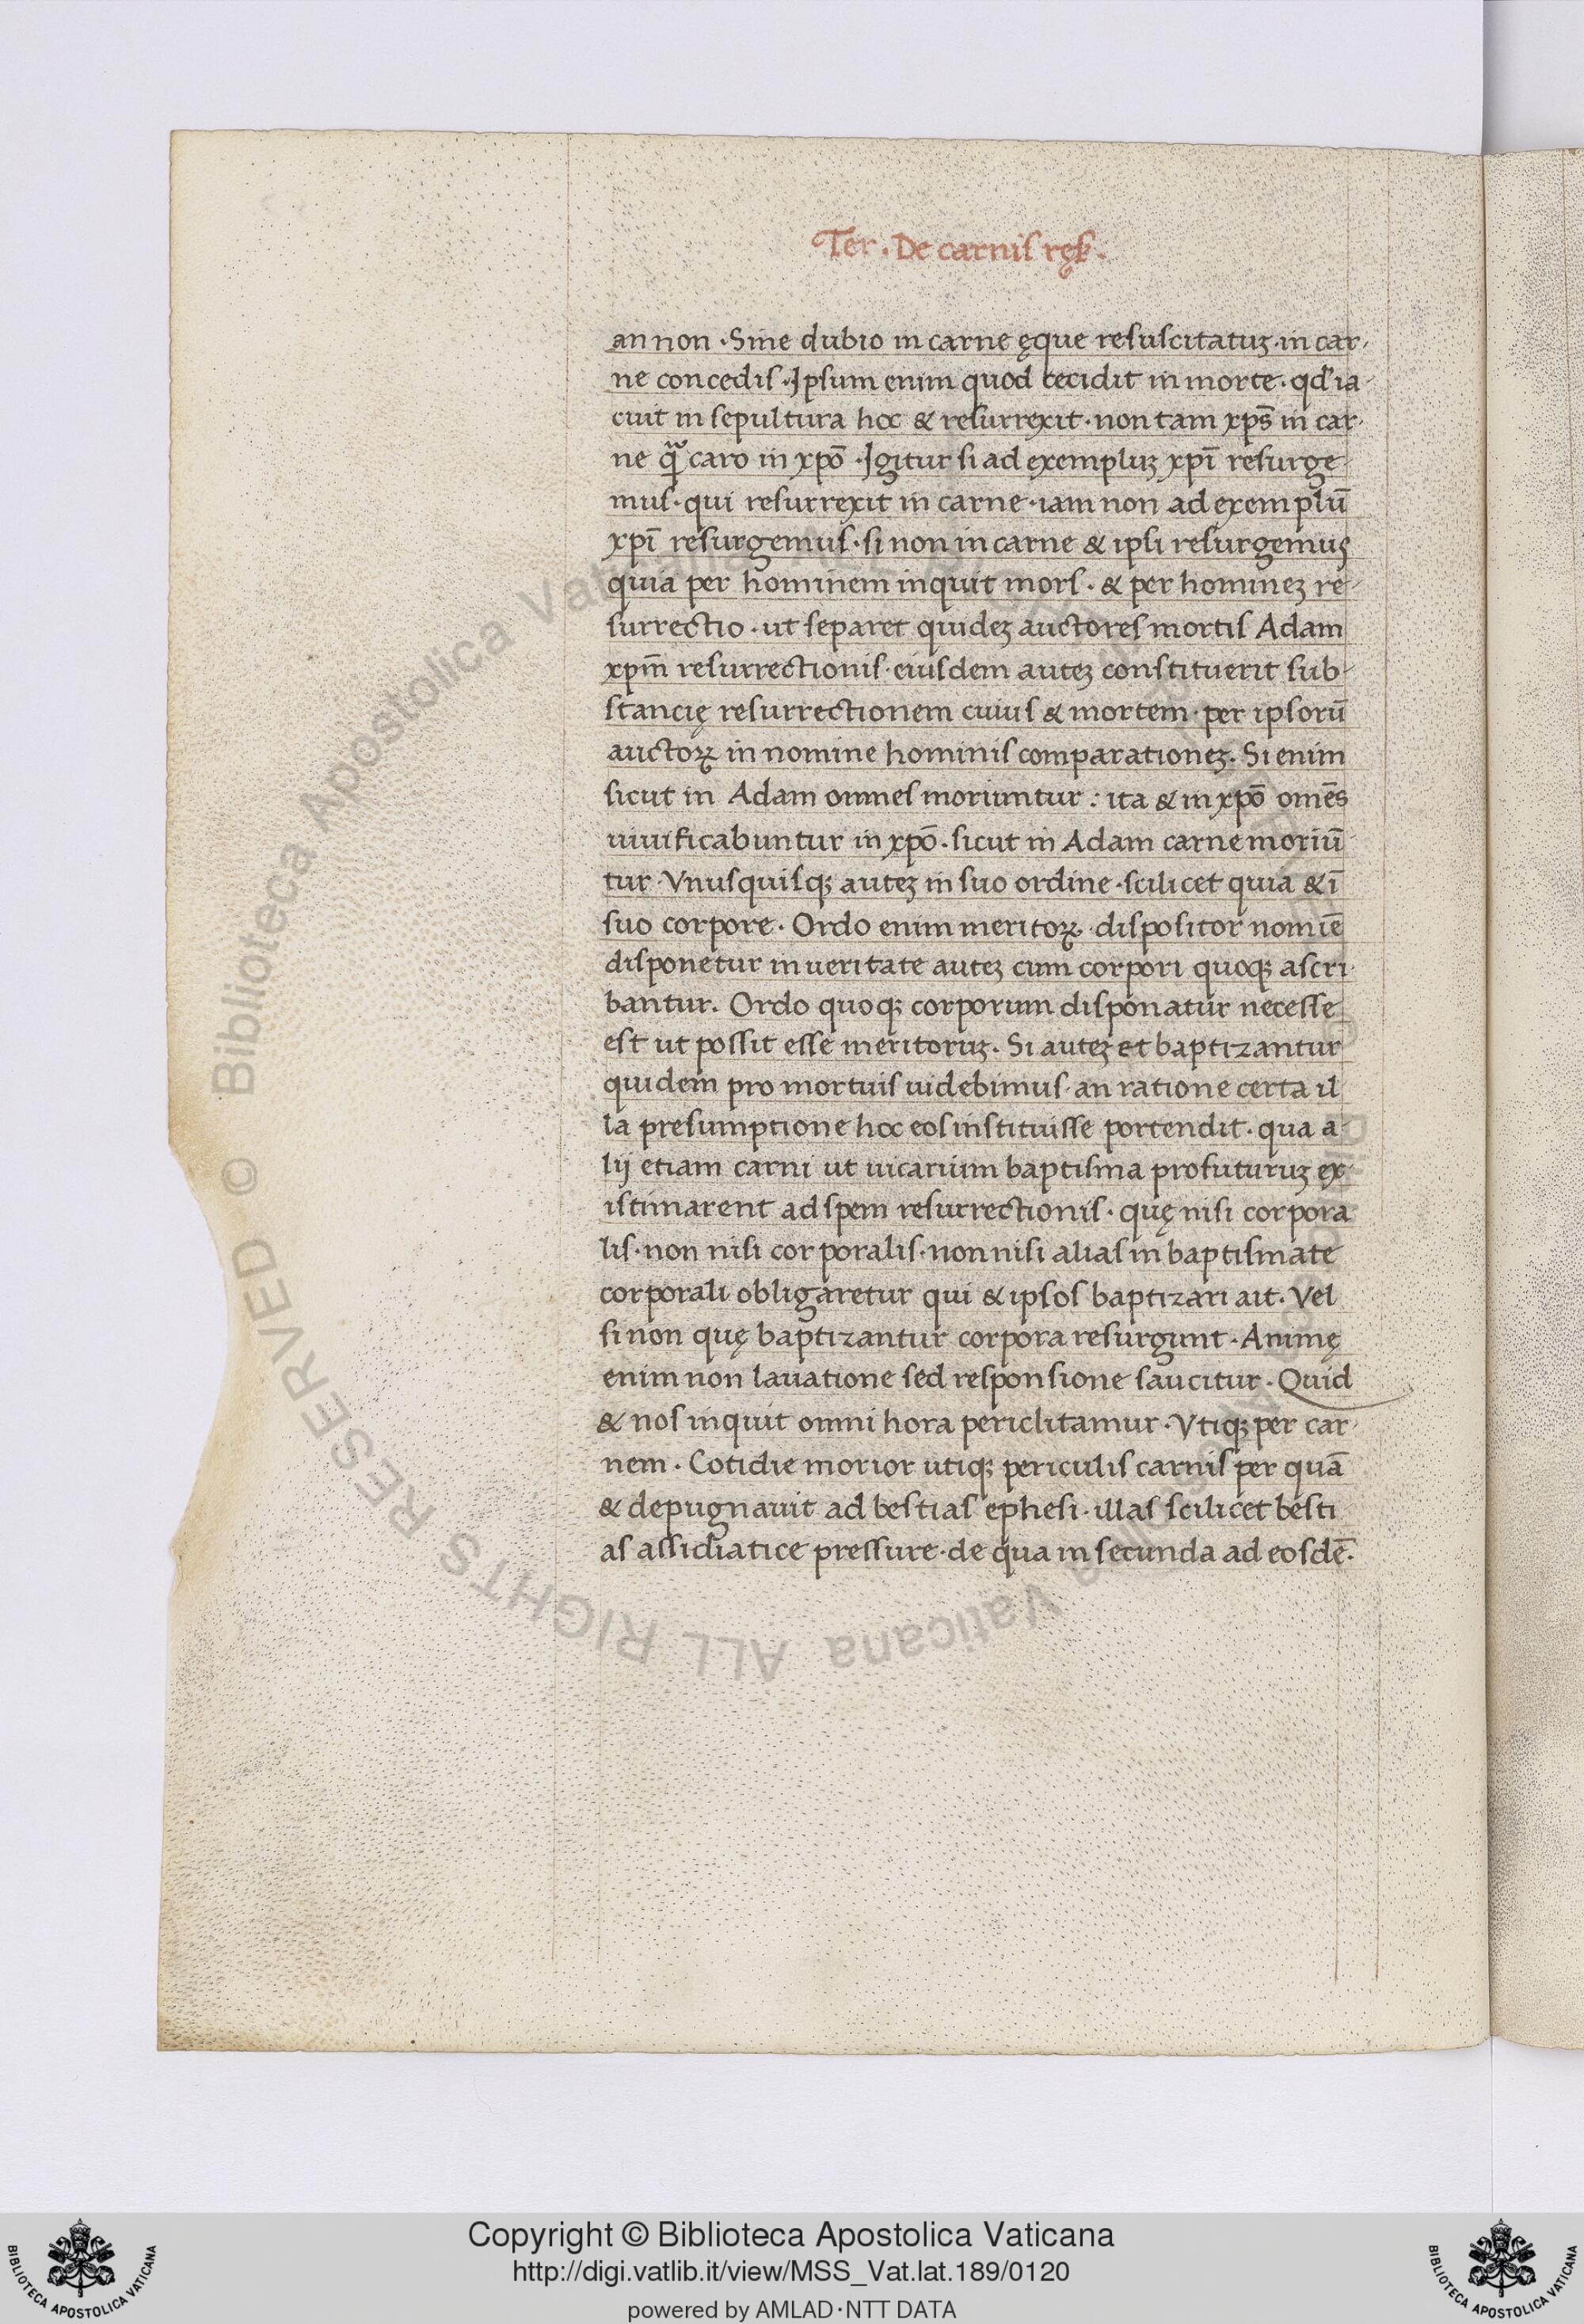 Ter. De carnis ręſ.
an non. Sine dubio in carne ęque resuscitatuʒ. in car-
ne concedis. Ipsum enim quod cecidit in morte. qd' ia-
cuit in sepultura hoc & resurrexit. non tam xp̄s in car-
ne quā caro in xp̄o. Igitur si ad exempluʒ xp̄i resurge-
mus. qui resurrexit in carne. iam non ad exemplū
xp̄i resurgemus. si non in carne & ipsi resurgemus
quia per hominem inquit mors. & per homineʒ re-
surrectio. ut separet quideʒ auctores mortis Adam
xp̄m resurrectionis. eiusdem auteʒ constituerit sub-
stancię resurrectionem cuius & mortem. per ipsorū
auctoꝝ in nomine hominis comparationeʒ. Si enim
sicut in Adam omnes moriuntur: ita & in xp̄o om̄es
uiuificabuntur in xp̄o. sicut in Adam carne moriū-
tur. Vnusquisqʒ auteʒ in suo ordine. scilicet quia & ī
suo corpore. Ordo enim meritoꝝ. dispositor nomīe
disponetur in ueritate auteʒ cum corpori quoqʒ ascri-
bantur. Ordo quoqʒ corporum disponatur necesse
est ut possit esse meritoruʒ. Si auteʒ et baptizantur
quidem pro mortuis uidebimus. an ratione certa il-
la presumptione hoc eos instituisse portendit. qua a-
lij etiam carni ut uicarium baptisma profuturuʒ ex-
istimarent ad spem resurrectionis. quę nisi corpora
lis. non nisi corporalis. non nisi alias in baptismate
corporali obligaretur qui & ipsos baptizari ait. Vel
si non quę baptizantur corpora resurgunt. Animę
enim non lauatione sed responsione saucitur. Quid
& nos inquit omni hora periclitamur. Vtiqʒ per car-
nem. Cotidie morior utiqʒ periculis carnis per quā
& depugnauit ad bestias ephesi. illas scilicet besti
as assidiatice pressure. de qua in secunda ad eosdē.
© Biblioteca Apostolica Vaticana ALL RIGHTS RESERVED
Copyright © Biblioteca Apostolica Vaticana
http://digi.vatlib.it/view/MSS_Vat.lat.189/0120
powered by AMLAD·NTT DATA
BIBLIOTECA APOSTOLICA VATICANA
BIBLIOTECA APOSTOLICA VATICANA